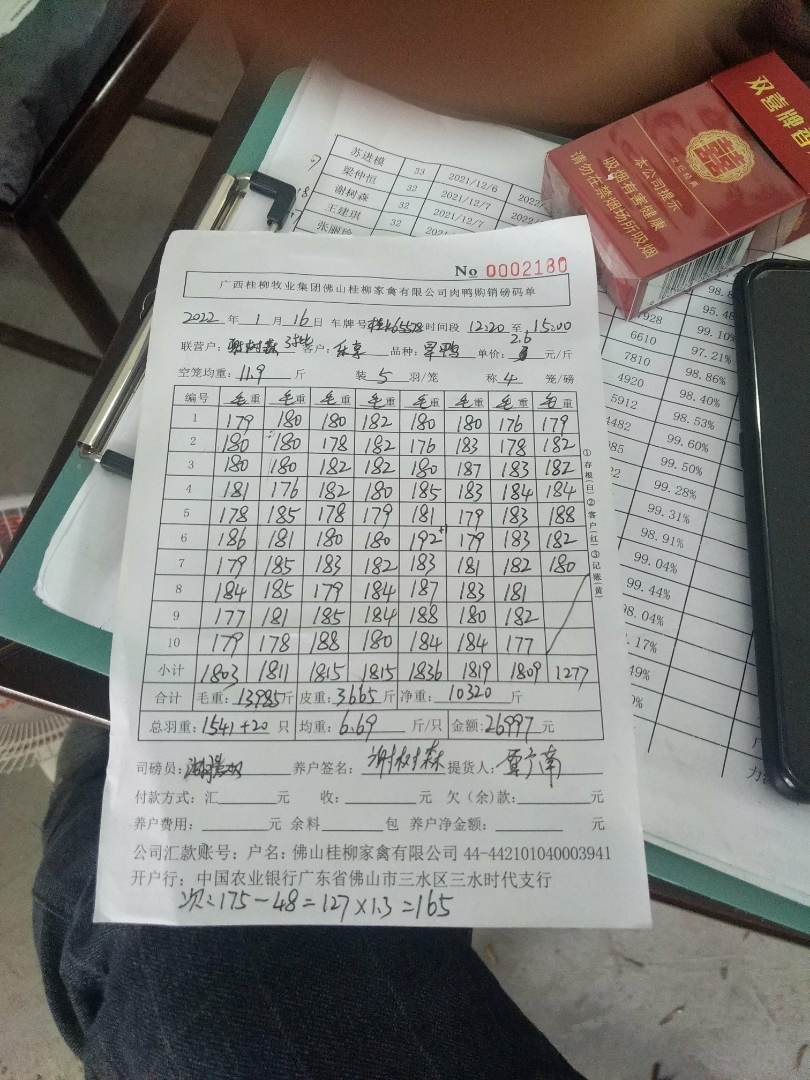 苏进模 33 2021/12/6
梁仲恒 32 2021/12/7 2022
谢树森 32 2021/12/7
王建琪 32
双喜牌香
世纪经典
本公司提示
吸烟有害健康
请勿在禁烟场所吸烟
No 0002180
广西桂柳牧业集团佛山桂柳家禽有限公司肉鸭购销磅码单
2022 年 1 月 16 日 车牌号 时间段 12:20 至 15:00
联营户: 谢树森 客户: 品种: 旱鸭 单价: 2.6 元/斤
空笼均重: 11.9 斤 装 5 羽/笼 称 4 笼/磅
编号 毛重 毛重 毛重 毛重 毛重 毛重 毛重 毛重
1 179 180 180 182 180 180 176 179
2 180 180 178 182 176 183 178 182
3 180 180 182 182 180 187 183 182
4 181 176 182 180 185 183 184 184
5 178 185 178 179 181 179 183 188
6 186 181 180 180 192 179 183 182
7 179 185 183 182 183 181 182 180
8 184 185 179 184 187 183 181
9 177 181 185 184 188 180 182
10 179 178 188 180 184 184 177
小计 1803 1811 1815 1815 1836 1819 1809 1277
合计 毛重: 13985斤 皮重: 3665斤 净重: 10320 斤
总羽重: 1541+20 只 均重: 6.69 斤/只 金额: 26997元
司磅员: 养户签名: 谢树森 提货人: 覃广南
付款方式: 汇 元 收: 元 欠(余)款: 元
养户费用: 元 余料 包 养户净金额: 元
公司汇款账号: 户名: 佛山桂柳家禽有限公司 44-442101040003941
开户行: 中国农业银行广东省佛山市三水区三水时代支行
次: 175-48=127×1.3=165
①存根(白)②客户(红)③记账(黄)
7928 95.48
6610 99.10%
7810 97.21%
4920 98.86%
5912 98.40%
4482 98.53%
99.60%
99.50%
99.28%
99.31%
98.91%
99.04%
99.44%
98.04%